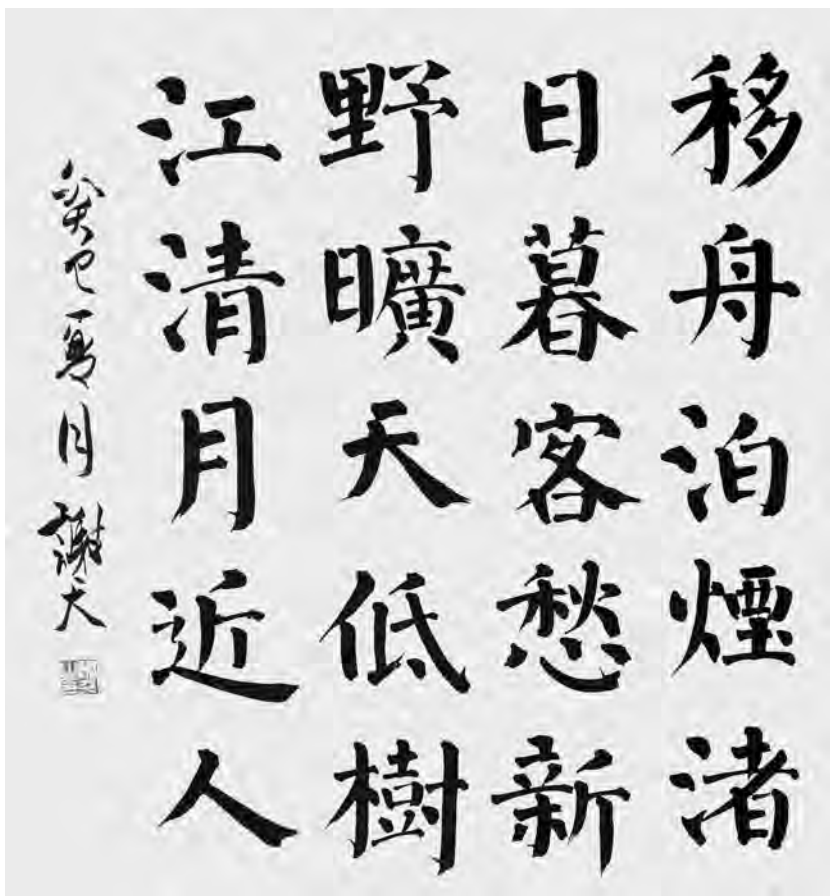 移舟泊煙渚
日暮客愁新
野曠天低樹
江清月近人
癸巳夏月謝天